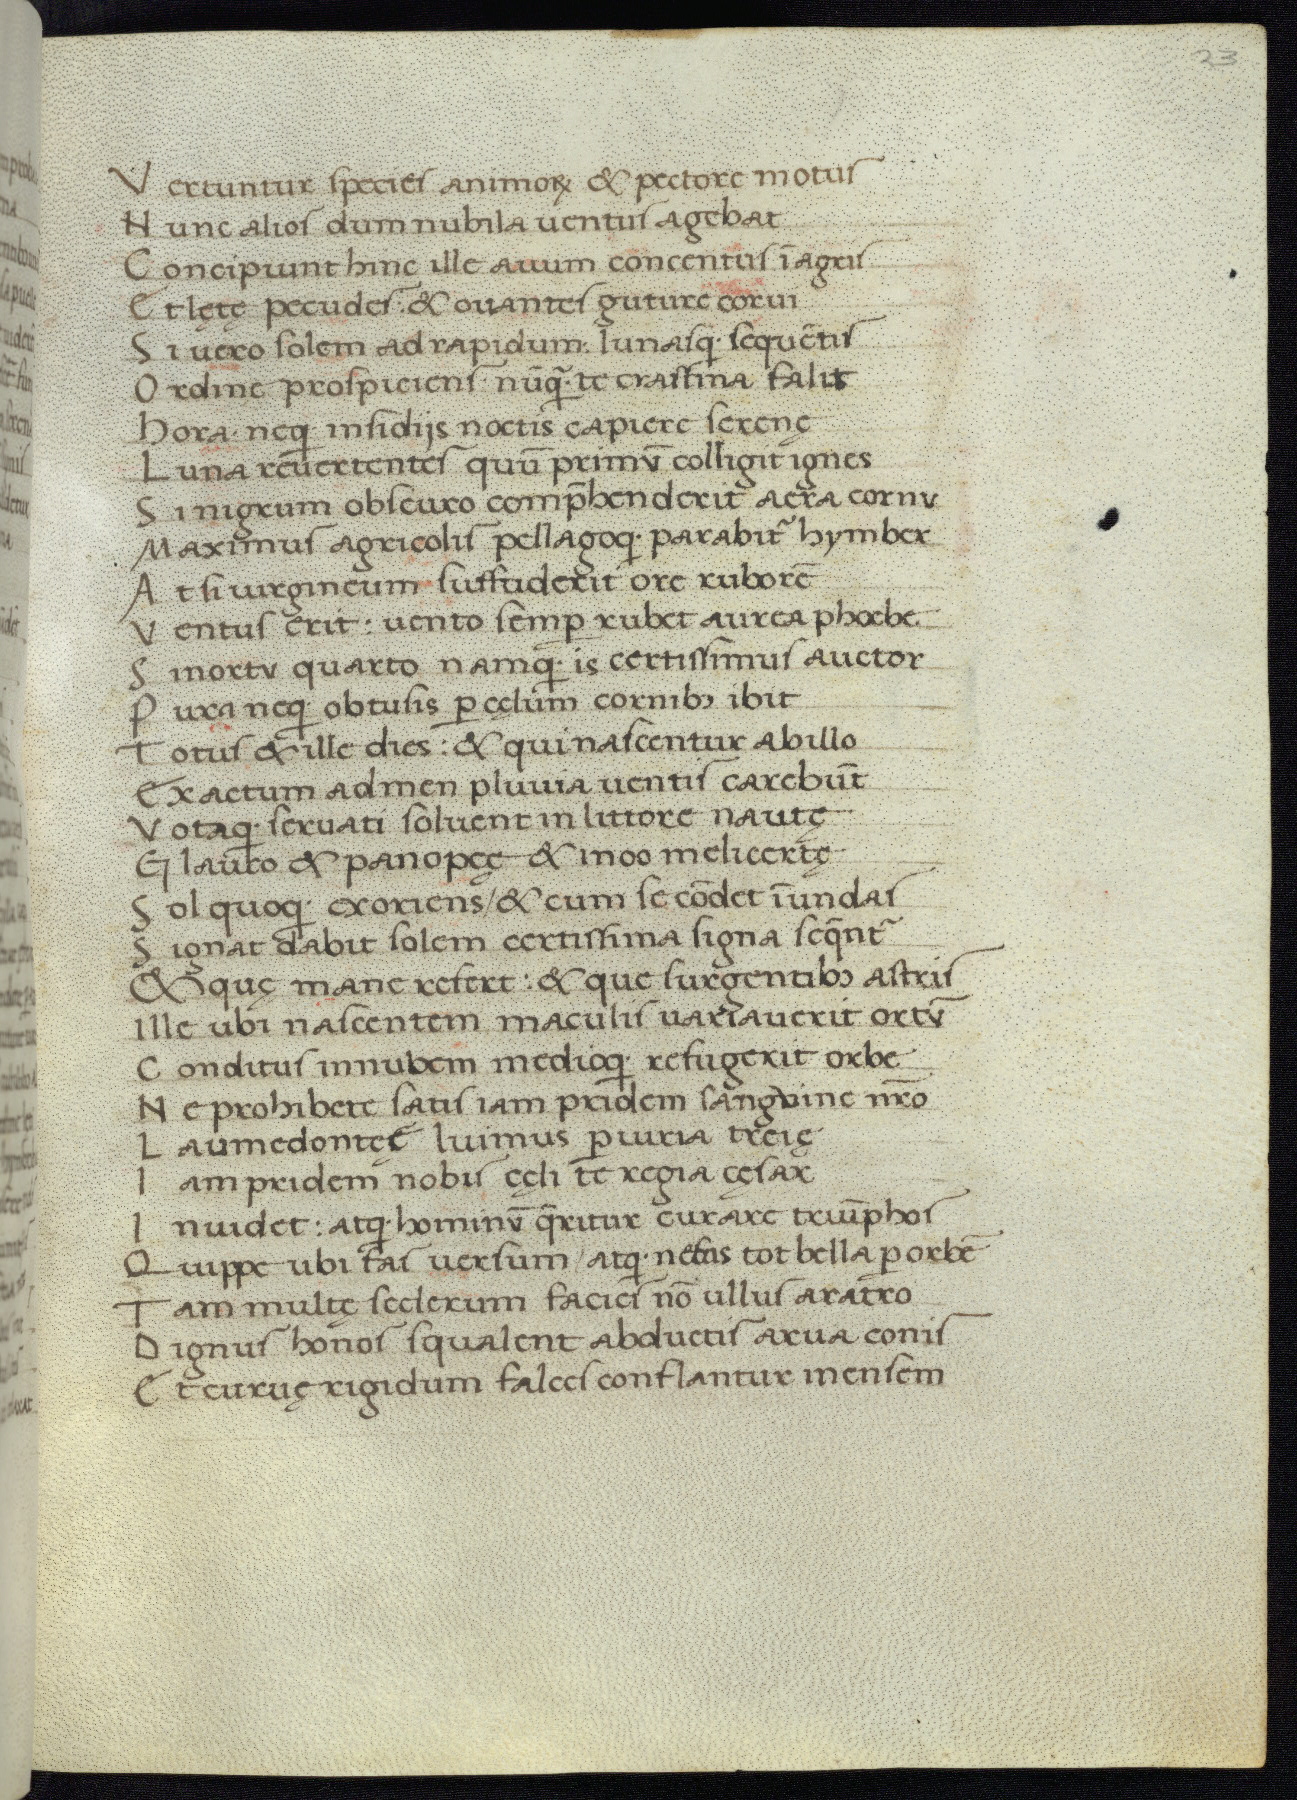 23
Vertuntur species animoꝝ & pectore motus
Nunc alios dum nubila uentus agebat
Concipiunt hinc ille auium concentus ī agris
Et lętę pecudes · & ouantes guture corui
Si uero solem ad rapidum : lunasq · sequētis
Ordine prospiciens nūq̃ · te crastina falit
Hora · neq insidijs noctis capiere serenę
Luna reuertentes quū primū colligit ignes
Si nigrum obscuro comp̄henderit aera cornu
Maximus agricolis pellagoq · parabit᷑ hymber
At si uirgineum suffuderit ore ruborē
Ventus erit : uento semꝑ rubet aurea phoebe
Sin ortu quarto namq · is certissimus auctor
Pura neq obtusis ꝑ cęlum cornibꝫ ibit
Totus & ille dies : & qui nascentur ab illo
Exactum ad men pluuia uentis carebūt
Votaq · seruati soluent in littore nautę
Glauco & panopeę & inoo melicertę
Sol quoq · exoriens / & cum se cōdet ī undas
Signat dabit solem certissima signa seq̄nt᷑
& quę mane refert : & que surgentibꝫ astris
Ille ubi nascentem maculis uariauerit ortū
Conditus in nubem medioq · refugerit orbe
Ne prohibete satis iam pridem sanguine nr̄o
Laumedontęę luimus ꝑiuria treię
Iam pridem nobis cęli te regia cęsar
Inuidet : atq · hominū q̄ritur curare triūphos
Quippe ubi fas uersum / atq · nefas tot bella ꝑ orbē
Tam multę scelerum facies nō ullus aratro
Dignus honos squalent abductis arua conis
Et curuę rigidum falces conflantur in ensem